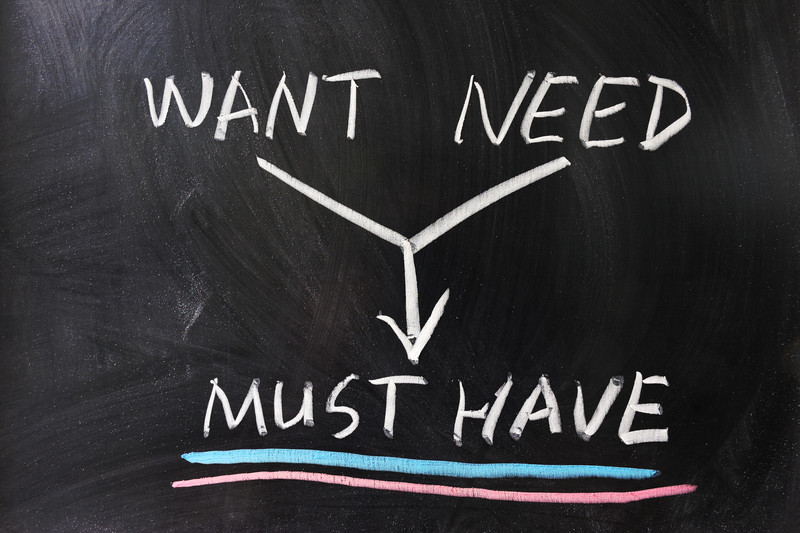 WANT NEED
MUST HAVE